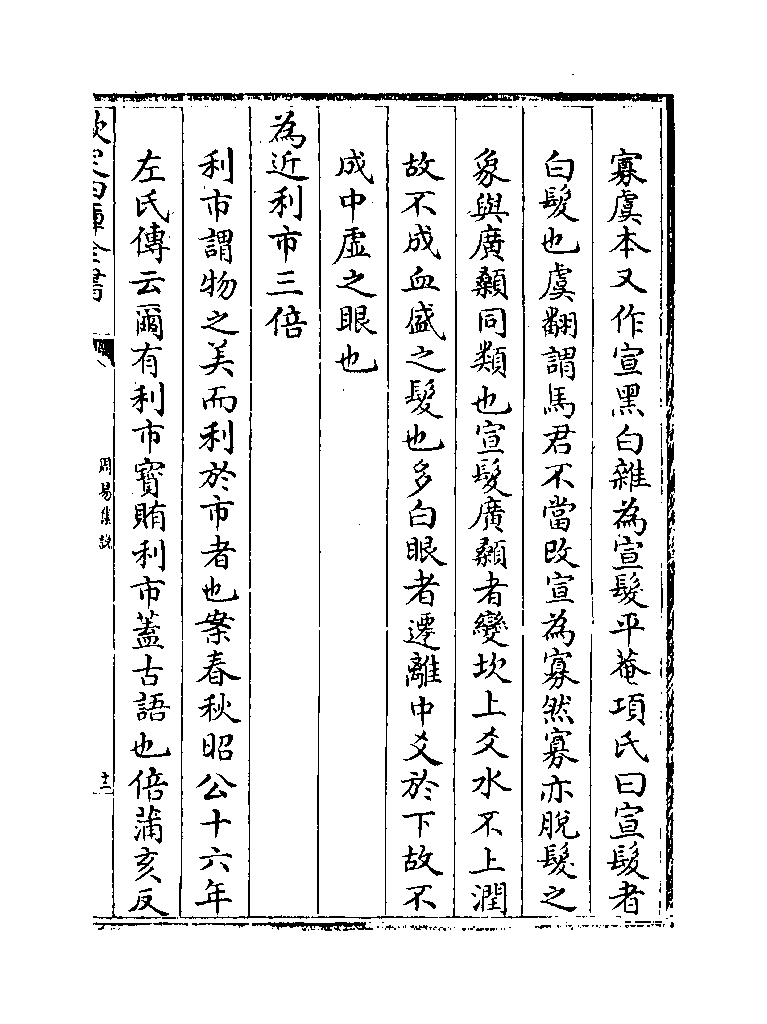 寡虞本又作宣黑白雜為宣髮平菴項氏曰宣髮者
白髮也虞翻謂馬君不當改宣為寡然寡亦脫髮之
象與廣顙同類也宣髮廣顙者變坎上爻水不上潤
故不成血盛之髮也多白眼者遷離中爻於下故不
成中虛之眼也
為近利市三倍
利市謂物之美而利於市者也案春秋昭公十六年
左氏傳云爾有利市寳賄利市蓋古語也倍蒲亥反
欽定四庫全書
周易集說
十二